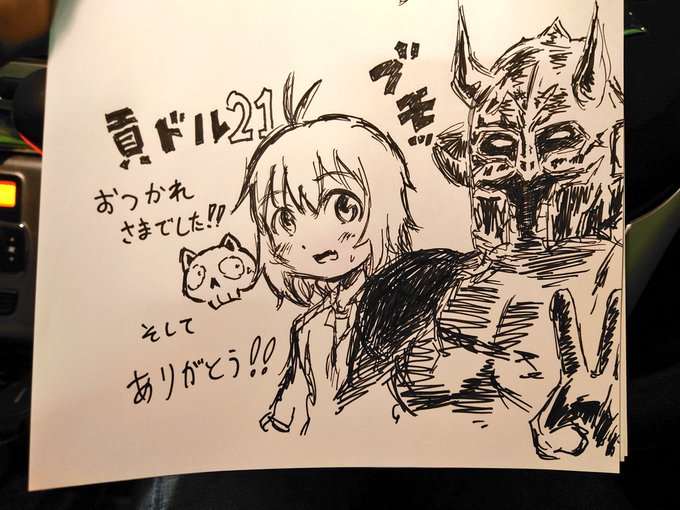 貢ドル21
おつかれ
さまでした!!
そして
ありがとう!!
ブモッ